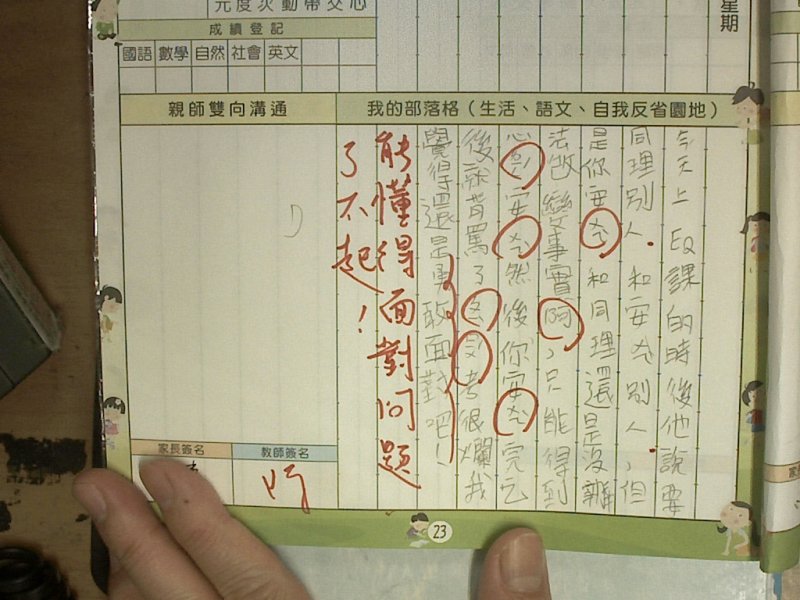 元度次動帶交心
成績登記
國語 數學 自然 社會 英文
星期
親師雙向溝通
我的部落格（生活、語文、自我反省園地）
今天上EQ課的時後他說要
同理別人和安么別人，但
是你安么和同理還是沒辦
法改變事實啊，只能得到
心 安么然後你安么完
後 背罵了 考很爛我
覺得還是勇敢面對吧！
能懂得面對問題
了不起！
家長簽名
教師簽名
23